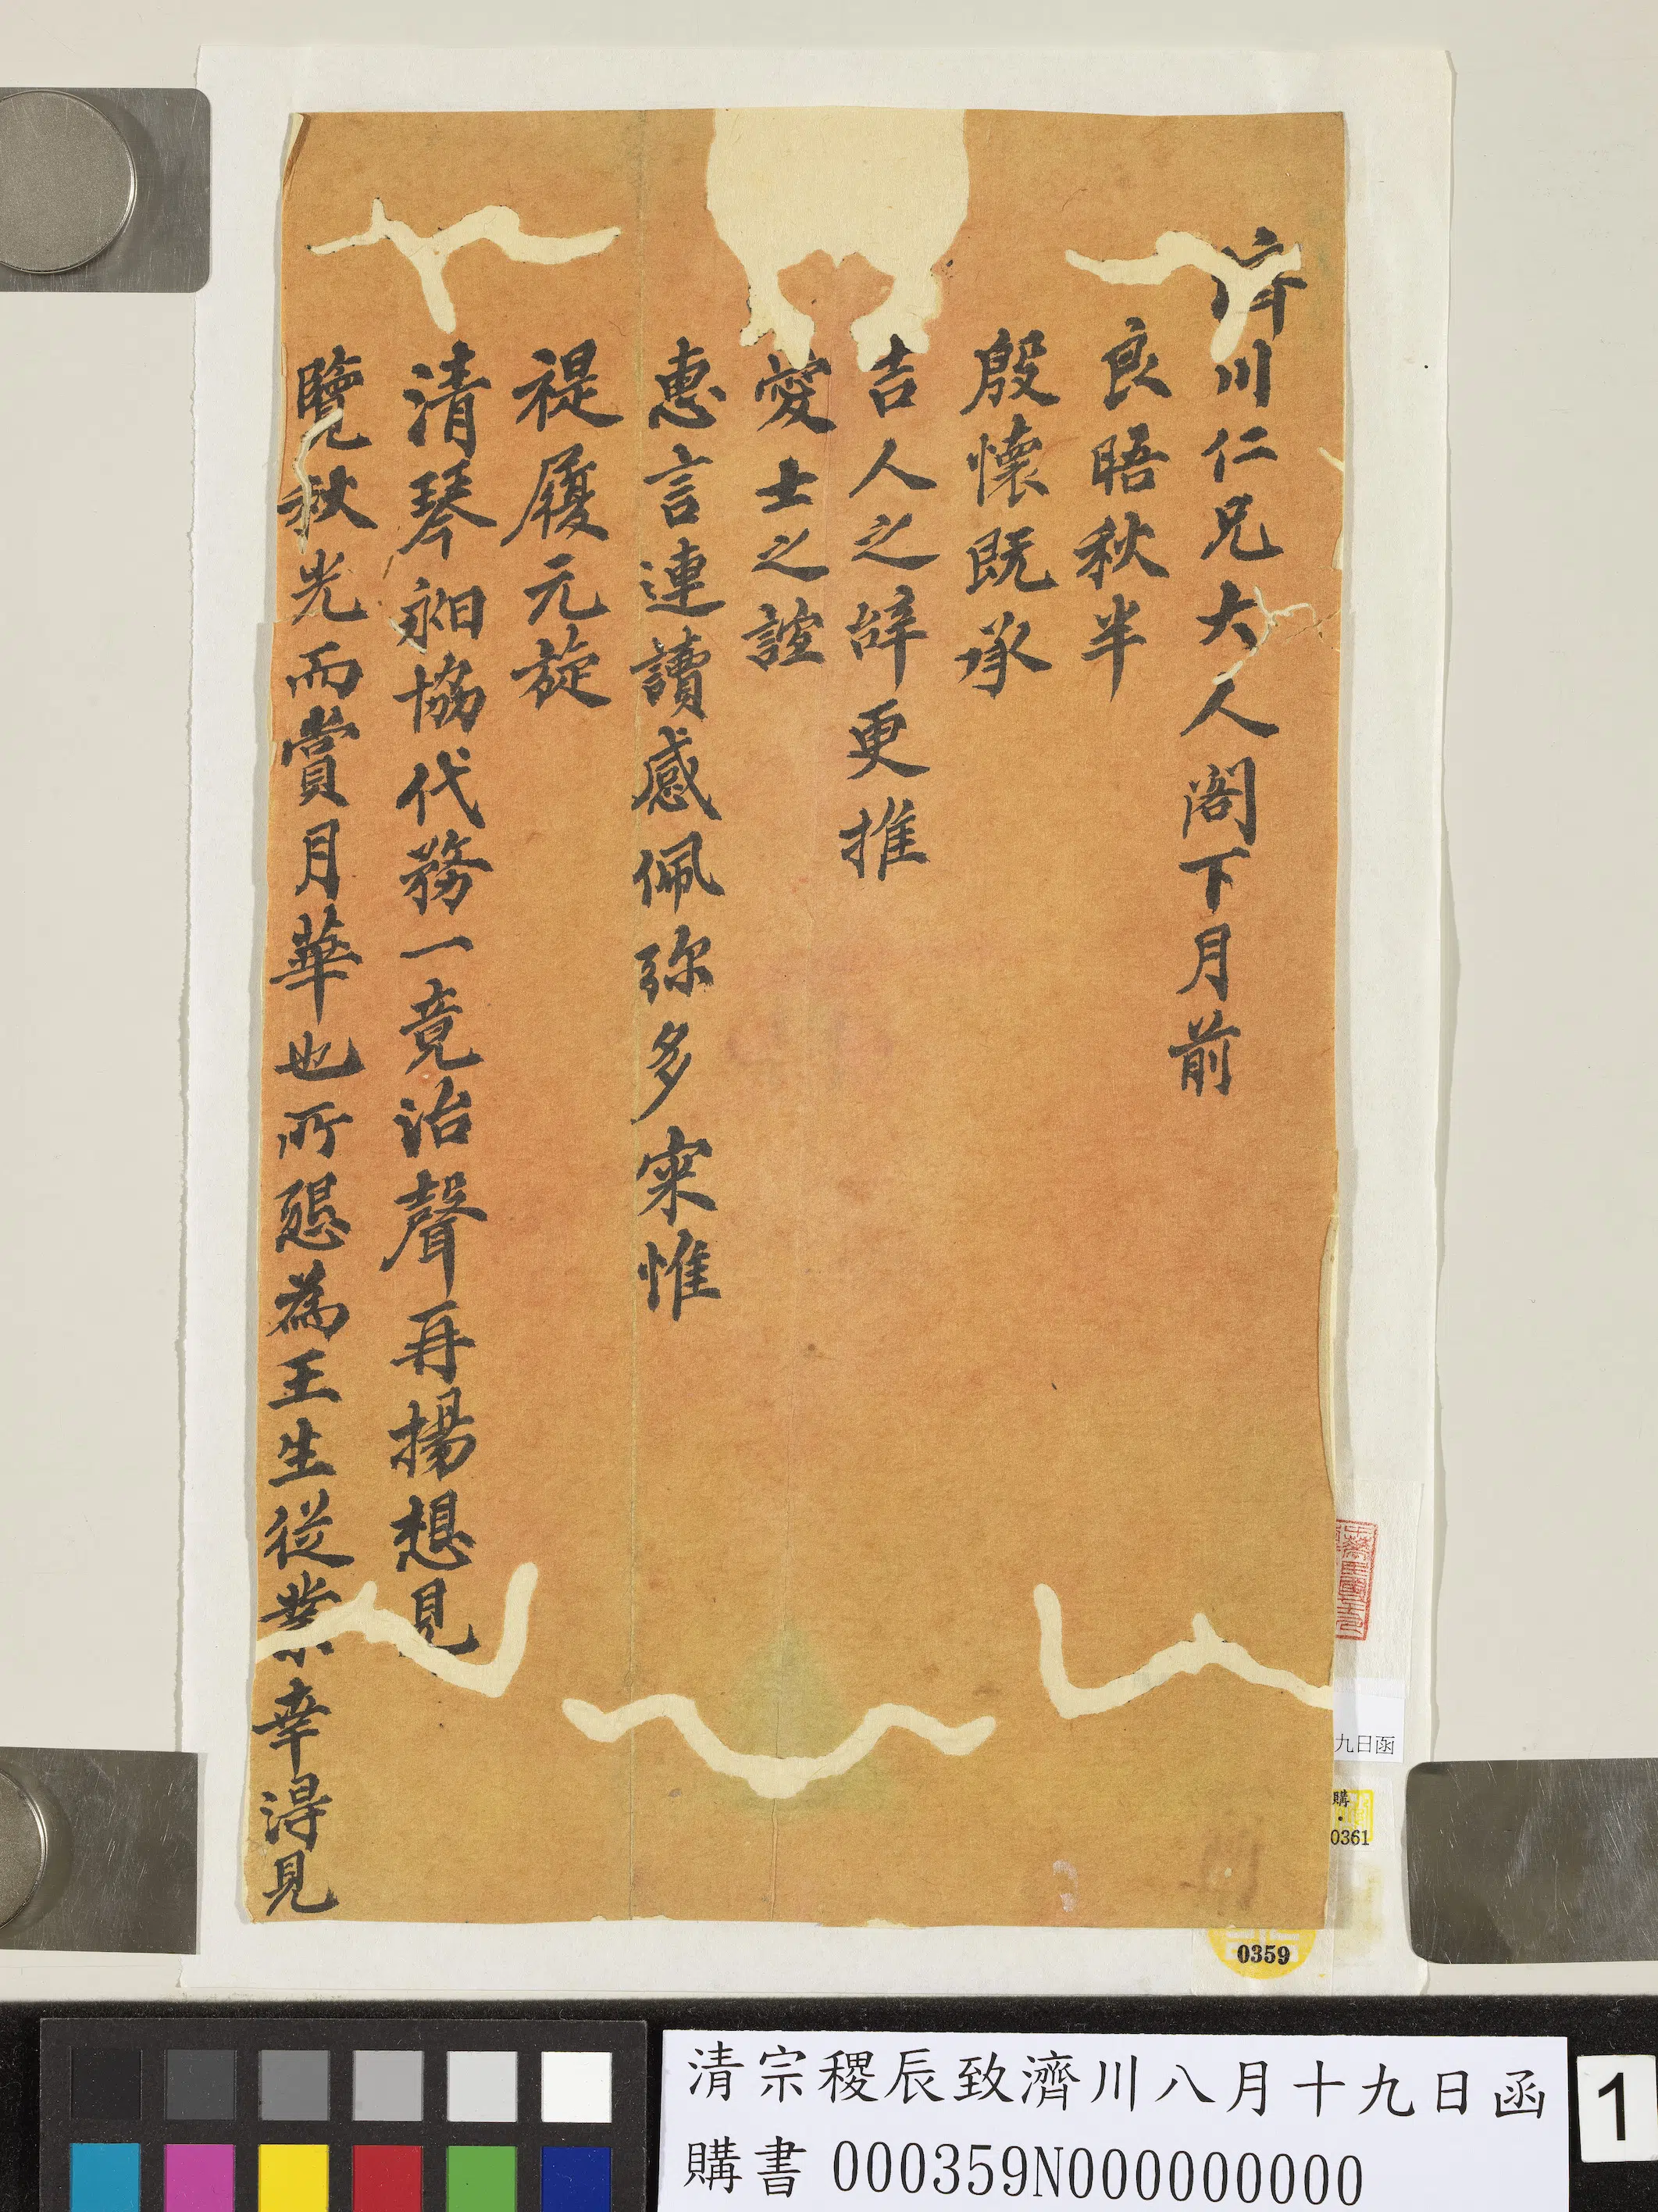 濟川仁兄大人閣下月前
良晤秋半
殷懷既承
吉人之辭更推
愛士之誼
惠言連讀感佩弥多寀惟
禔履元旋
清琴昶協代務一竟治聲再揚想見
覽秋光而賞月華也所懇為王生從業幸得見
九日函
購
0361
0359
清宗稷辰致濟川八月十九日函
購書 000359N000000000
1